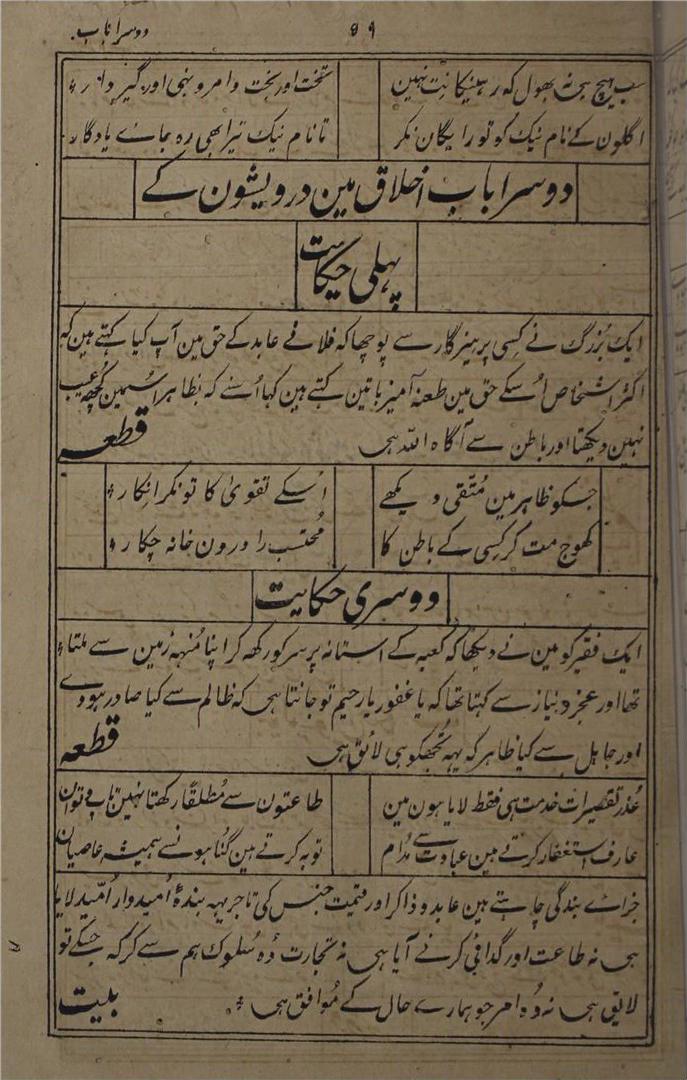 دوسرا باب
سب ہیچ ہی نہ بھول کہ رہنیکا نت نہین تخت اور بخت و امر و نہی اور گیر و دار
اگلون کے نام نیک کو تو رایگان نکر تا نام نیک تیرا بھی رہ جاے یادگار
دوسرا باب اخلاق مین درویشون کے
پہلی حکایت
ایک بزرگ نے کسی پرہیزگار سے پوچھا کہ فلانے عابد کے حق مین آپ کیا کہتے ہین کہ
اکثر اشخاص اُسکے حق مین طعنہ آمیز باتین کہتے ہین کہا اُسنے کہ بظاہر اسمین کُچھ عیب
نہین دیکھتا اور باطن سے آگاہ اللہ ہی قطعہ
جسکو ظاہر مین مُتقی دیکھے اُسکے تقویٰ کا تو نکر انکار
کھوج مت کر کسی کے باطن کا مُحتسب را درون خانہ چکار
دوسری حکایت
ایک فقیر کو مین نے دیکھا کہ کعبہ کے استانہ پر سر کو رکھہ کر اپنا مُنہہ زمین سے ملتا
تھا اور عجز و نیاز سے کہتا تھا کہ یا غفور یا رحیم تو جانتا ہی کہ ظالم سے کیا صادر ہووے
اور جاہل سے کیا ظاہر کہ یہہ تُجھکو ہی لائق ہی قطعہ
عُذر تقصیرات خدمت ہی فقط لایا ہون مین طاعتون سے مُطلقاً رکھتا نہین تاب و توان
عارف استغفار کرتے ہین عبادت سے مُدام توبہ کرتے ہین گناہونسے ہمیشہ عاصیان
جزاے بندگی چاہتے ہین عابد و ذاکر اور قیمت جنس کی تاجر یہہ بندۂ اُمیدوار اُمّید لایا
ہی نہ طاعت اور گدائی کرنے آیا ہی نہ تجارت وُہ سُلوک ہم سے کر کہ جسکے تو
لایق ہی نہ وُہ امر جو ہمارے حال کے مُوافق ہی بیت